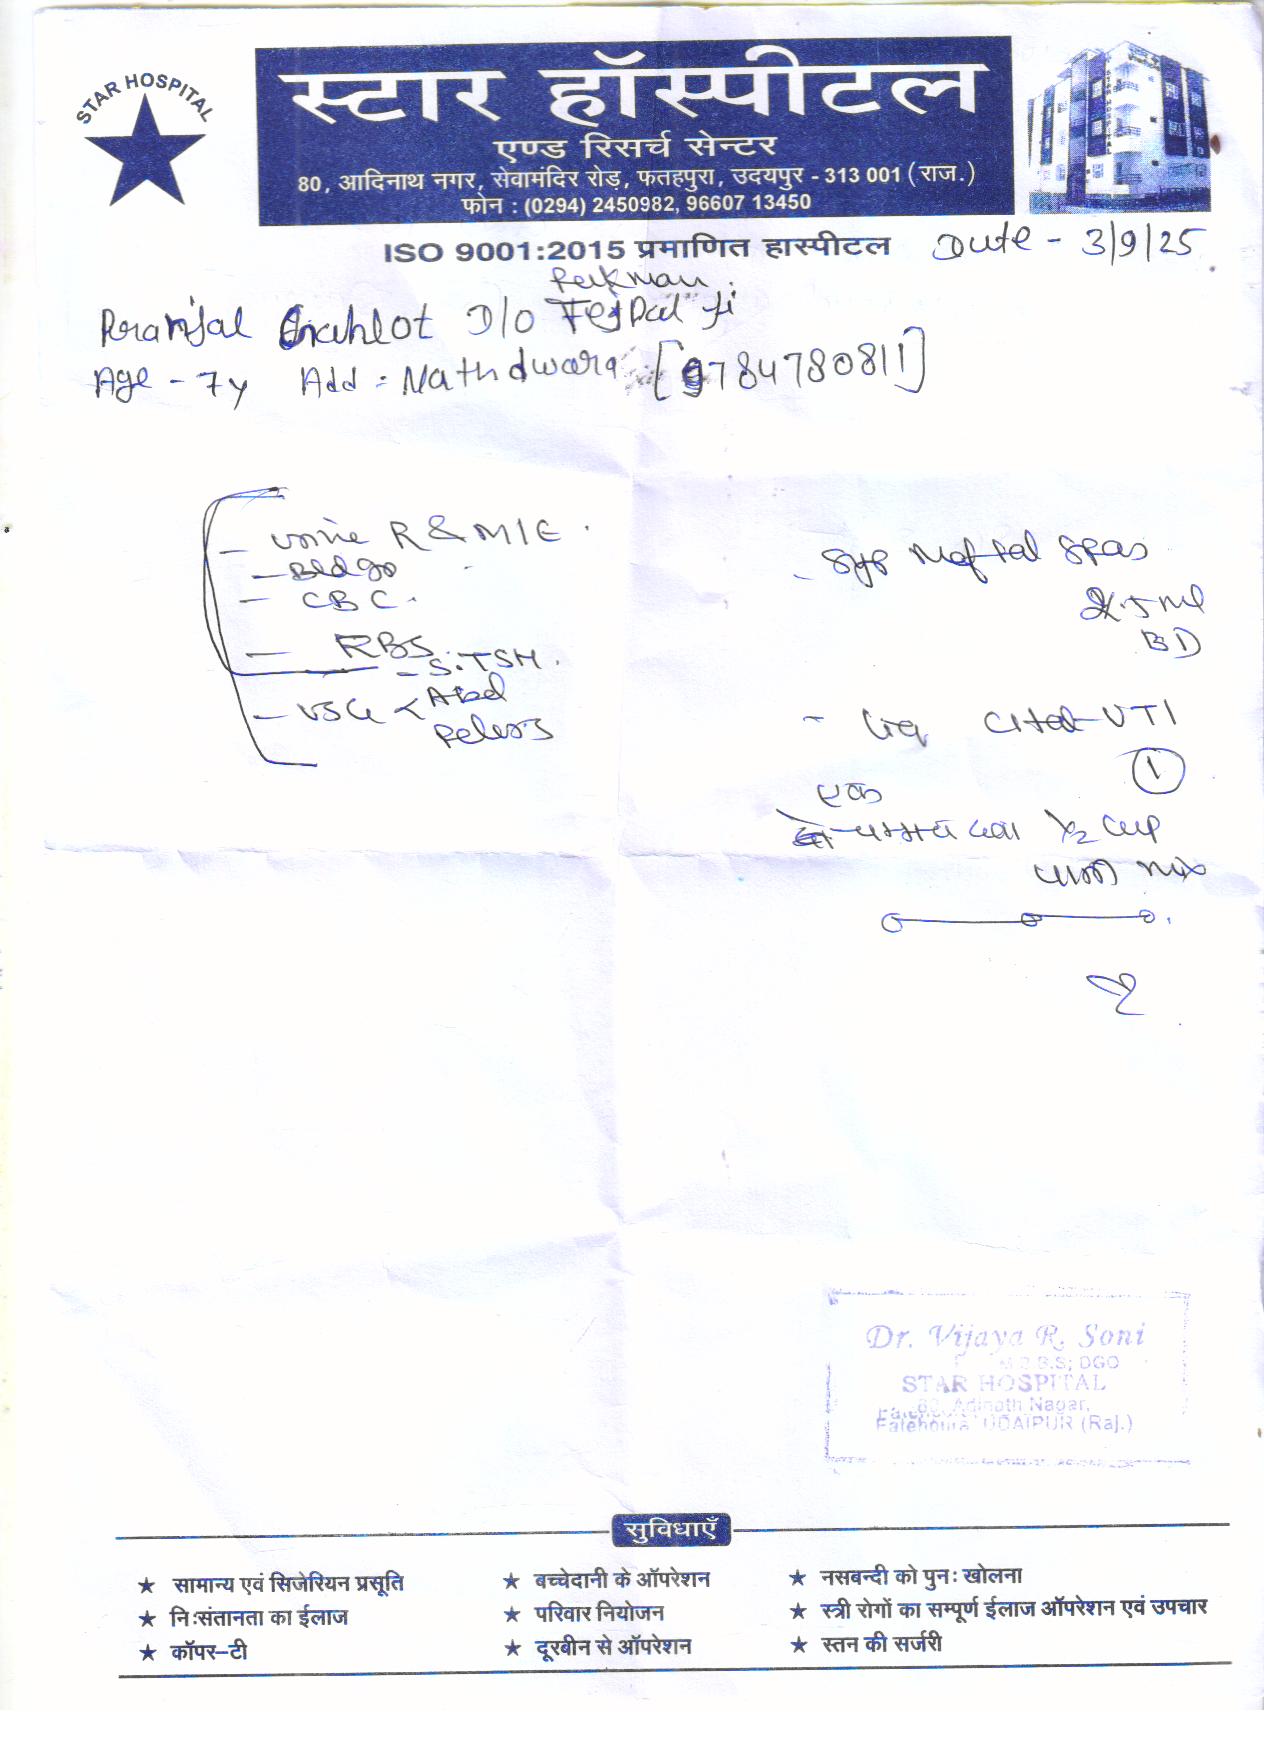 STAR HOSPITAL
स्टार हॉस्पीटल
एण्ड रिसर्च सेन्टर
80, आदिनाथ नगर, सेवामंदिर रोड़, फतहपुरा, उदयपुर - 313 001 (राज.)
फोन : (0294) 2450982, 96607 13450
ISO 9001:2015 प्रमाणित हास्पीटल
Date - 3/9/25
Pranjal Gahlot D/o Tejpal ji
Age - 7y Add : Nathdwara [9784780811]
- Urine R & M/E.
- Bld gp
- CBC.
- RBS
- S.TSH.
- USG < Abd
Pelvis
- Syp Meftal Spas
2.5 ml
BD
- Liq Cital-UTI
①
एक
चम्मच दवा 1/2 cup
पानी mix
Dr. Vijaya R. Soni
M.B.B.S; DGO
STAR HOSPITAL
80, Adinath Nagar,
Fatehpura UDAIPUR (Raj.)
सुविधाएँ
★ सामान्य एवं सिजेरियन प्रसूति
★ निःसंतानता का ईलाज
★ कॉपर-टी
★ बच्चेदानी के ऑपरेशन
★ परिवार नियोजन
★ दूरबीन से ऑपरेशन
★ नसबन्दी को पुनः खोलना
★ स्त्री रोगों का सम्पूर्ण ईलाज ऑपरेशन एवं उपचार
★ स्तन की सर्जरी